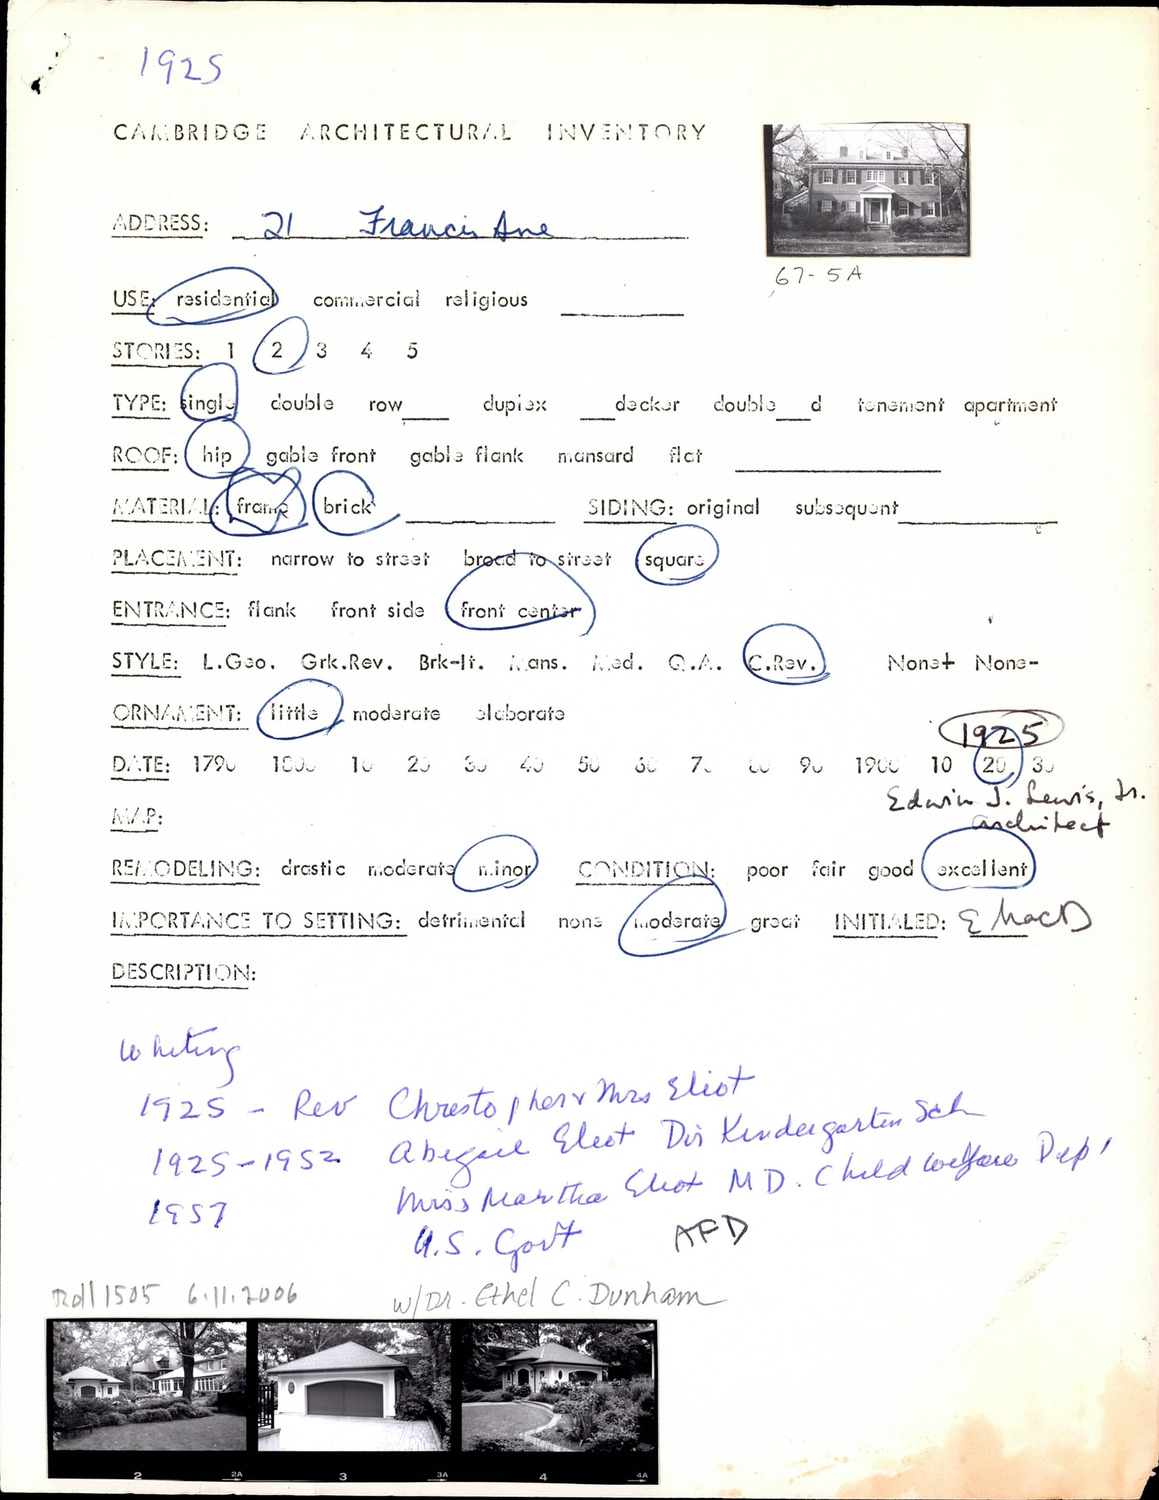 1925
CAMBRIDGE ARCHITECTURAL INVENTORY
ADDRESS: 21 Francis Ave
67-5A
USE: residential commercial religious
STORIES: 1 2 3 4 5
TYPE: single double row____ duplex ___decker double___d tenement apartment
ROOF: hip gable front gable flank mansard flat
MATERIAL: frame brick SIDING: original subsequent
PLACEMENT: narrow to street broad to street square
ENTRANCE: flank front side front center
STYLE: L.Geo. Grk.Rev. Brk-It. Mans. Med. Q.A. C.Rev. None+ None-
ORNAMENT: little moderate elaborate
1925
DATE: 1790 1800 10 20 30 40 50 60 70 80 90 1900 10 20 30
Edwin J. Lewis, Jr.
architect
MAP:
REMODELING: drastic moderate minor CONDITION: poor fair good excellent
IMPORTANCE TO SETTING: detrimental none moderate great INITIALED: E MacD
DESCRIPTION:
Whiting
1925 - Rev Christopher & Mrs Eliot
1925-1952 Abigail Eliot Dir Kindergarten Sch
1957 Miss Martha Eliot MD. Child Welfare Dept
U.S. Govt AFD
Roll 1505 6.11.2006 w/Dr. Ethel C. Dunham
2 2A 3 3A 4 4A